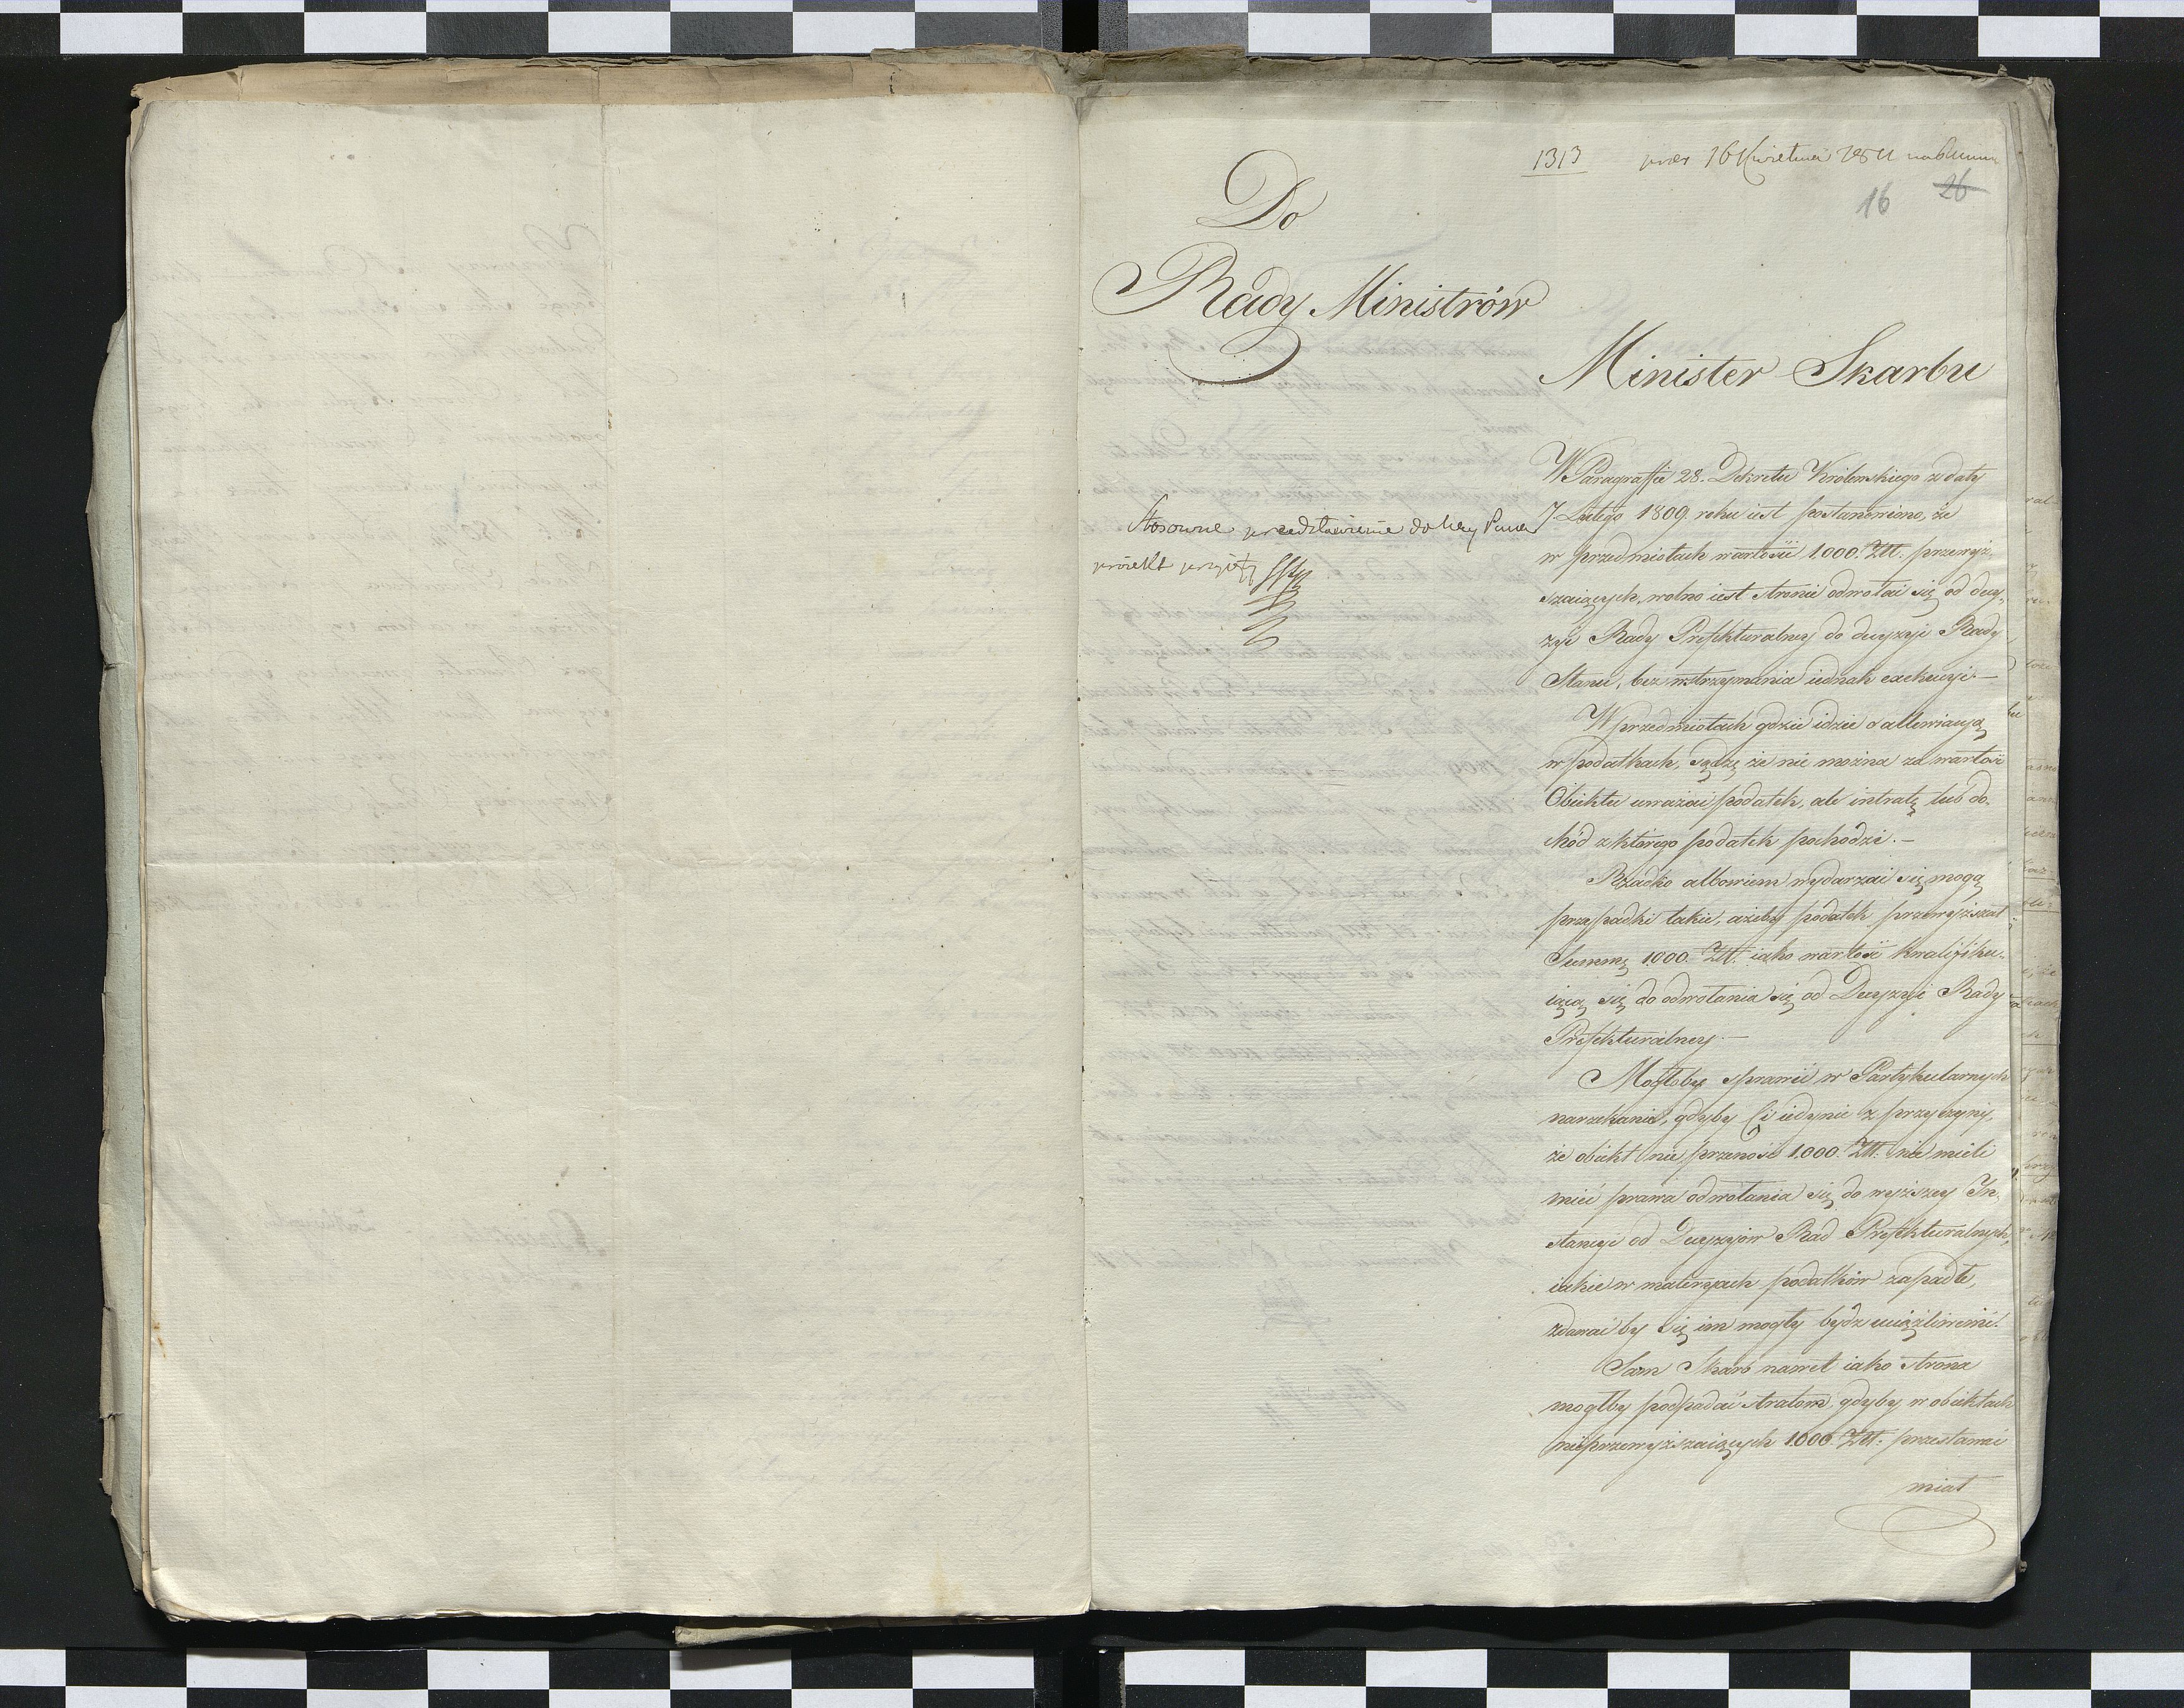 1313 16 Kwietnia 1811
16 26
Do
Rady Ministrów
Minister Skarbu
Stosowne przedstawienie do Nay Pana
proiekt przyięty
W Paragraffie 28. Dekretu Królewskiego z daty
7. Lutego 1809. roku iest postanowiono, że
w przedmiotach wartości 1.000. Złł. przewyż-
szaiących, wolno iest stronie odwołać się od decy-
zyi Rady Prefekturalney do decyzyi Rady
Stanu, bez wstrzymania iednak exekucyi. —
W przedmiotach gdzie idzie o allewiacyą
w podatkach, sądzę że nie można za wartość
Obiektu uważać podatek, ale intratę lub do-
chód z którego podatek pochodzi. —
Rzadko albowiem wydarzać się mogą
przypadki takie, ażeby podatek przewyższał
Summę 1.000. Złł. iako wartość kwalifiku-
iącą się do odwołania się od Decyzyi Rady
Prefekturalney. —
Mogłoby sprawić w Partykularnych
narzekania, gdyby Ci iedynie z przyczyny,
że obiekt nie przenosi 1.000. Złł. nie mieli
mieć prawa odwołania się do wyższey In-
stancyi od Decyzyów Rad Prefekturalnych,
iakie w materyach podatków zapadłe,
zdawać by się im mogły bydź uciążliwemi.
Sam Skarb nawet iako strona
mogłby podpadać stratom, gdyby w obiektach
nieprzewyższaiących 1.000. Złł. przestawać
miał